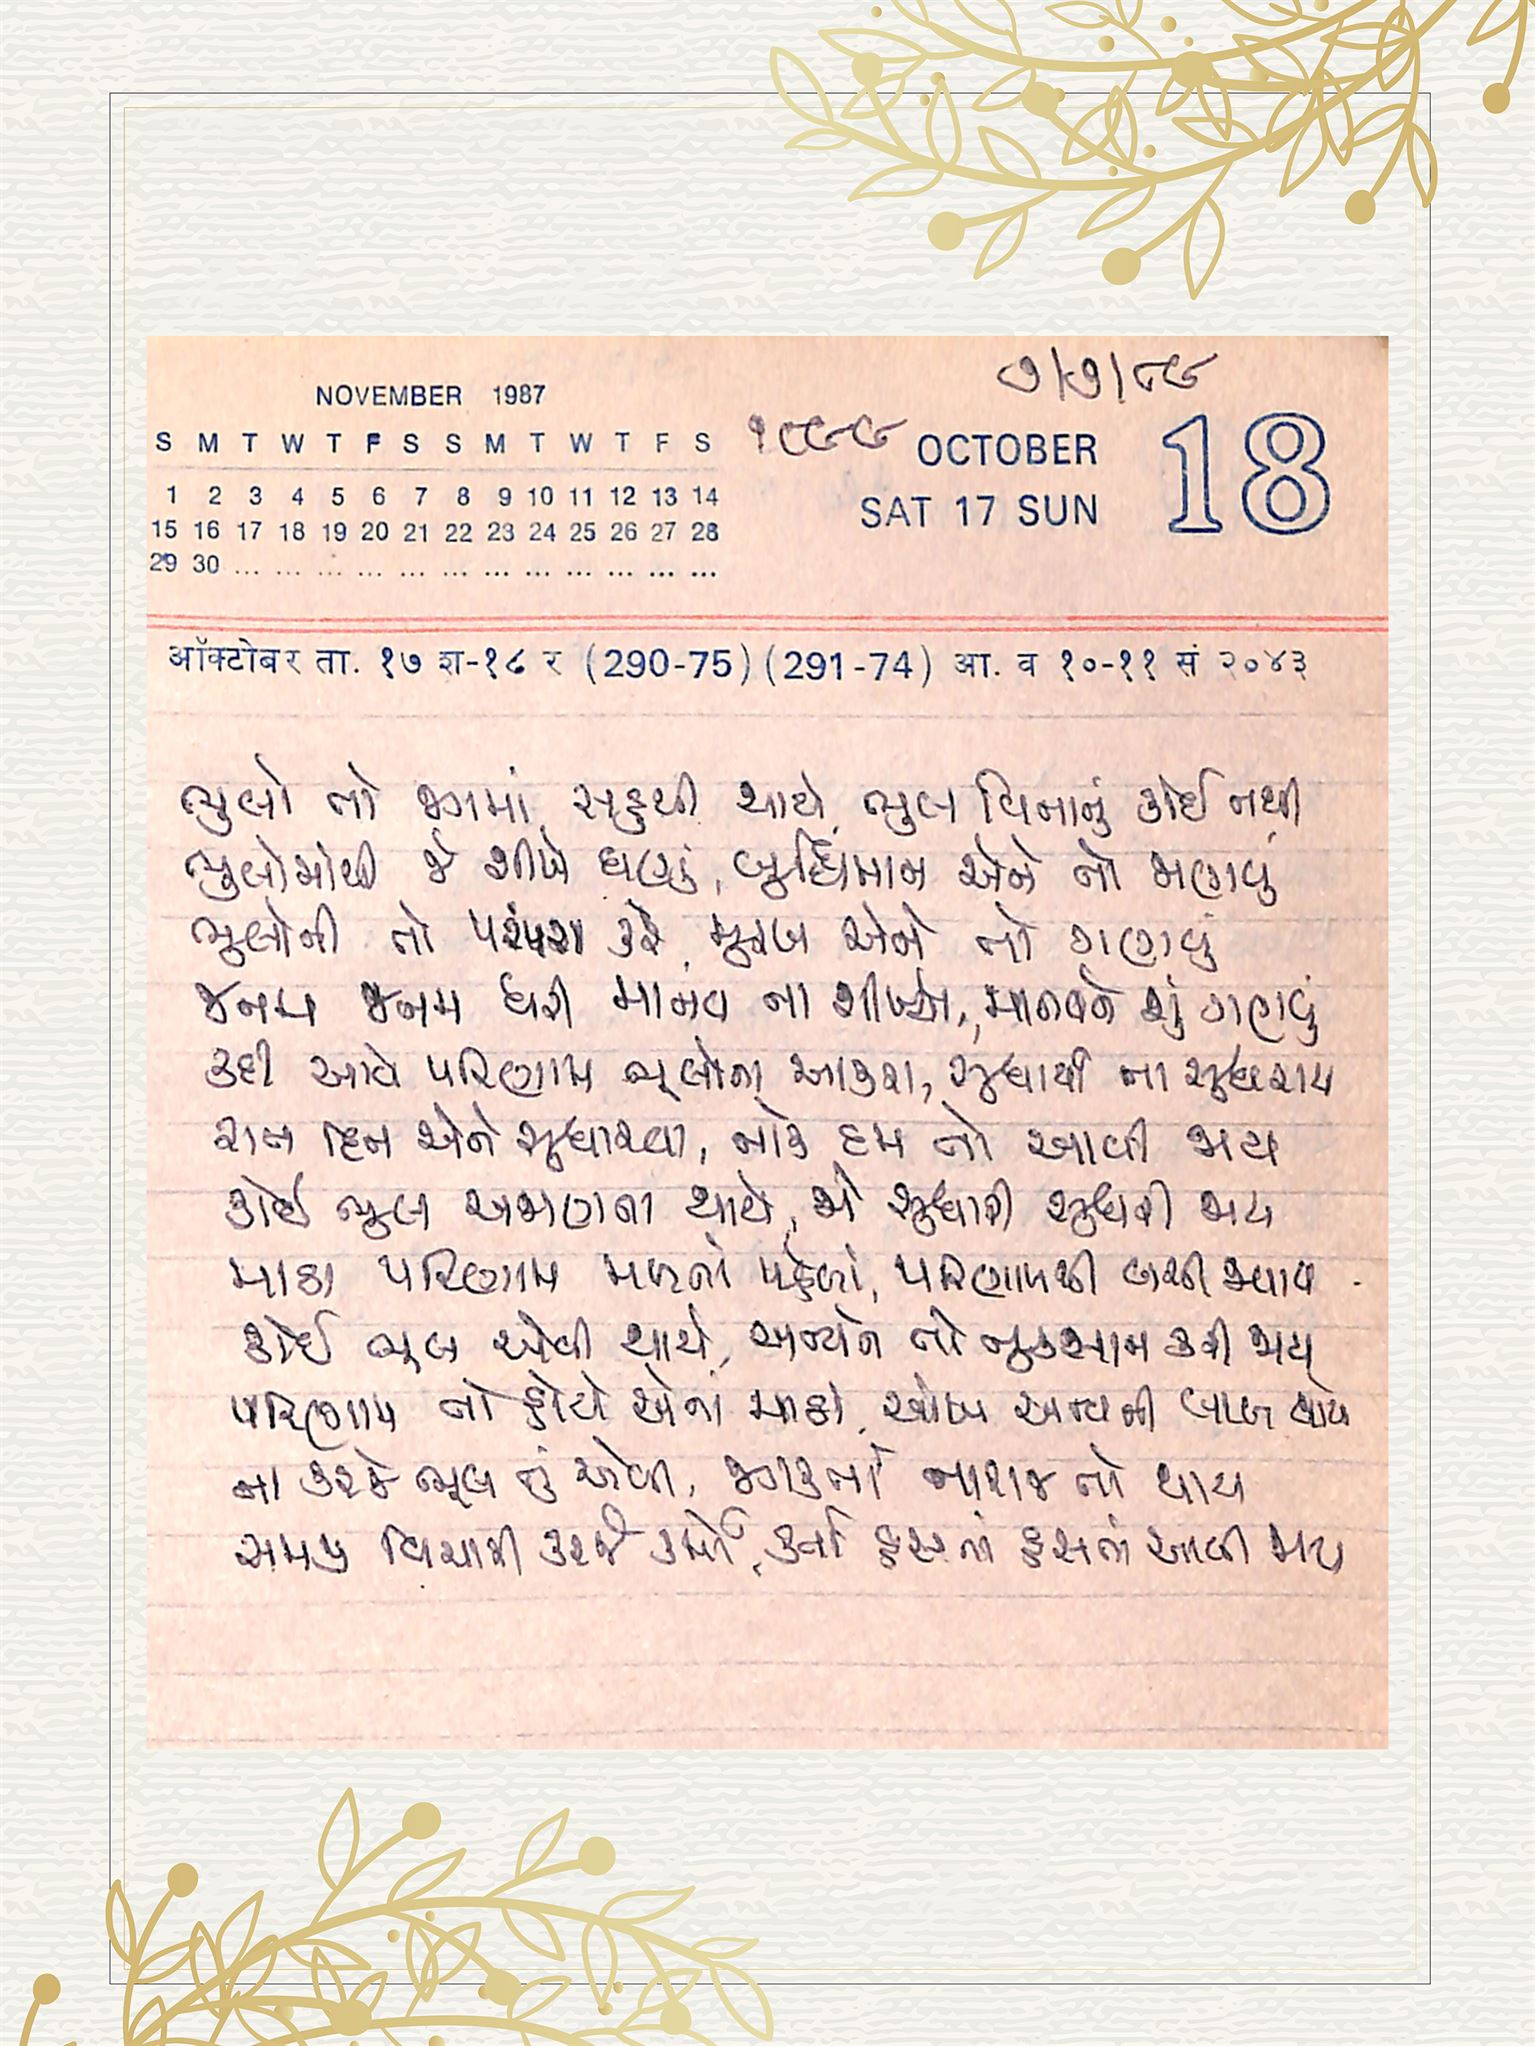 ૭/૫/૮૯
NOVEMBER 1987
S M T W T F S S M T W T F S
1 2 3 4 5 6 7 8 9 10 11 12 13 14
15 16 17 18 19 20 21 22 23 24 25 26 27 28
29 30 ... ... ... ... ... ... ... ... ... ... ... ...
OCTOBER 18
SAT 17 SUN
ऑक्टोबर ता. १७ श-१८ र (290-75) (291-74) आ. व १०-११ सं २०४३
ભુલો તો જગમાં સહુથી થાયે, ભુલ વિનાનું કોઈ નથી
ભુલોમાંથી જે શીખે ઘણું, બુદ્ધિમાન એને તો ગણવું
ભૂલોની તો પરંપરા કરે, મૂરખ એને તો ગણવું
જનમ જનમ ધરી માનવ ના શીખ્યો, માનવને શું ગણવું
કદી આવે પરિણામ ભૂલોના આકરા, સુધાર્યા ના સુધરાય
રાત દિન એને સુધારવા, નાકે દમ તો આવી જાય
કોઈ ભુલ અજાણતા થાયે, જો સુધારી સુધરી જાય
માઠા પરિણામ મળતાં પહેલાં, પરિણામથી બચી જવાય
કોઈ ભૂલ એવી થાયે, અન્યને તો નુકસાન કરી જાય
પરિણામ તો હોયે એનાં માઠાં, આંખ અન્યની લાલ થાય
ના કરજે ભૂલ તું એવી, જગકર્તા નારાજ તો થાય
સમજી વિચારી કરજે કર્મો, કર્તા હસતાં હસતાં આવી જાય